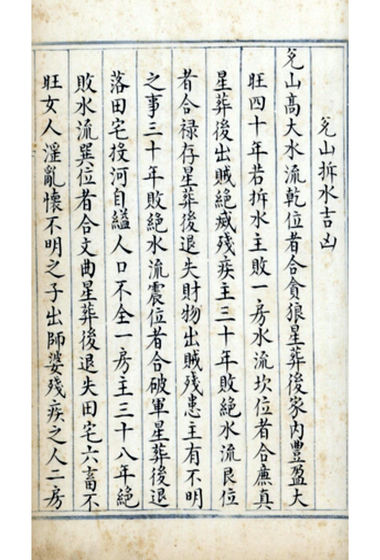 兌山拆水吉凶
兌山高大水流乾位者合貪狼星葬後家內豐盈大
旺四十年若拆水主敗一房水流坎位者合廉真
星葬後出賊絕臧殘疾主三十年敗絕水流艮位
者合禄存星葬後退失財物出賊殘患主有不明
之事三十年敗絕水流震位者合破軍星葬後退
落田宅投河自縊人口不全一房主三十八年絕
敗水流巽位者合文曲星葬後退失田宅六畜不
旺女人淫亂懷不明之子出師婆殘疾之人二房